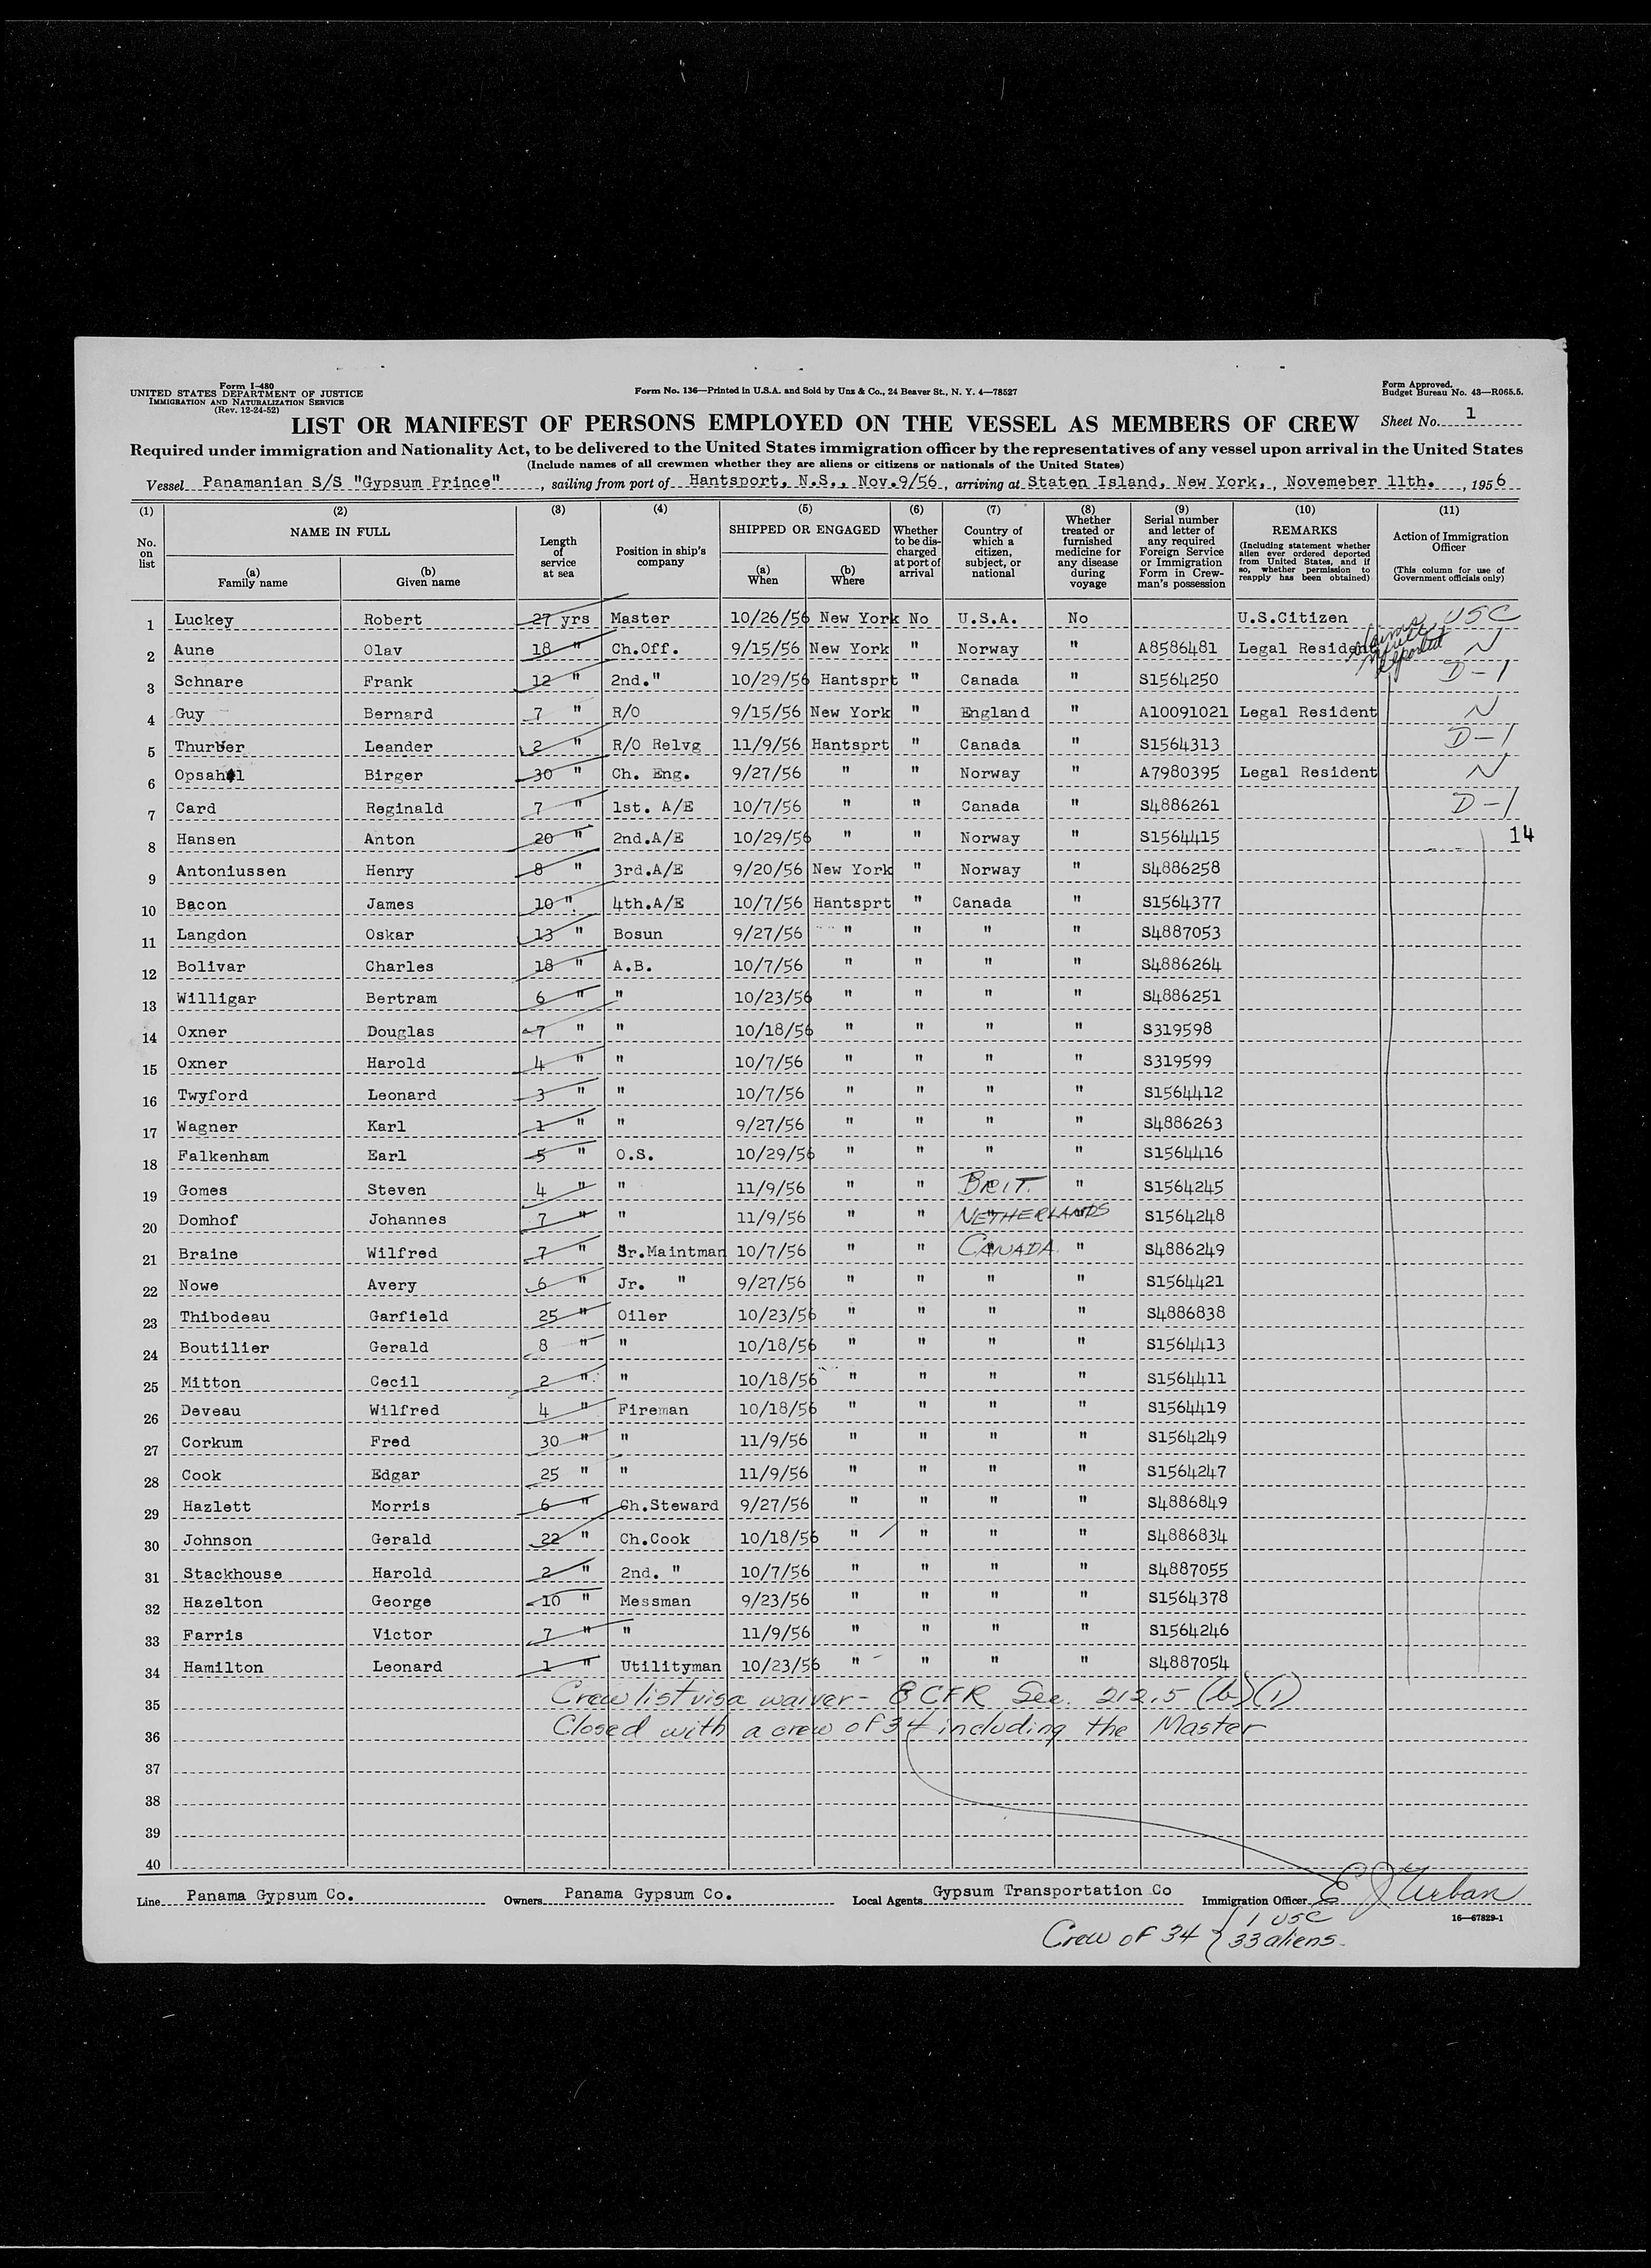 Form I-480
UNITED STATES DEPARTMENT OF JUSTICE
IMMIGRATION AND NATURALIZATION SERVICE
(Rev. 12-24-52)
Form No. 136—Printed in U.S.A. and Sold by Unz & Co., 24 Beaver St., N. Y. 4—78527
Form Approved.
Budget Bureau No. 43—R065.5.
LIST OR MANIFEST OF PERSONS EMPLOYED ON THE VESSEL AS MEMBERS OF CREW Sheet No. 1
Required under immigration and Nationality Act, to be delivered to the United States immigration officer by the representatives of any vessel upon arrival in the United States
(Include names of all crewmen whether they are aliens or citizens or nationals of the United States)
Vessel Panamanian S/S "Gypsum Prince", sailing from port of Hantsport, N.S., Nov.9/56, arriving at Staten Island, New York, , Novemeber 11th. , 1956
(1) No. on list
(2) NAME IN FULL (a) Family name (b) Given name
(3) Length of service at sea
(4) Position in ship's company
(5) SHIPPED OR ENGAGED (a) When (b) Where
(6) Whether to be discharged at port of arrival
(7) Country of which a citizen, subject, or national
(8) Whether treated or furnished medicine for any disease during voyage
(9) Serial number and letter of any required Foreign Service or Immigration Form in Crewman's possession
(10) REMARKS (Including statement whether alien ever ordered deported from United States, and if so, whether permission to reapply has been obtained)
(11) Action of Immigration Officer (This column for use of Government officials only)
1 Luckey Robert 27 yrs Master 10/26/56 New York No U.S.A. No U.S.Citizen USC
2 Aune Olav 18 " Ch.Off. 9/15/56 New York " Norway " A8586481 Legal Resident N
3 Schnare Frank 12 " 2nd." 10/29/56 Hantsprt " Canada " S1564250 D-1
4 Guy Bernard 7 " R/O 9/15/56 New York " England " A10091021 Legal Resident N
5 Thurber Leander 2 " R/O Relvg 11/9/56 Hantsprt " Canada " S1564313 D-1
6 Opsahl Birger 30 " Ch. Eng. 9/27/56 " " Norway " A7980395 Legal Resident N
7 Card Reginald 7 " 1st. A/E 10/7/56 " " Canada " S4886261 D-1
8 Hansen Anton 20 " 2nd.A/E 10/29/56 " " Norway " S1564415 14
9 Antoniussen Henry 8 " 3rd.A/E 9/20/56 New York " Norway " S4886258
10 Bacon James 10 " 4th.A/E 10/7/56 Hantsprt " Canada " S1564377
11 Langdon Oskar 13 " Bosun 9/27/56 " " " " S4887053
12 Bolivar Charles 18 " A.B. 10/7/56 " " " " S4886264
13 Willigar Bertram 6 " " 10/23/56 " " " " S4886251
14 Oxner Douglas 7 " " 10/18/56 " " " " S319598
15 Oxner Harold 4 " " 10/7/56 " " " " S319599
16 Twyford Leonard 3 " " 10/7/56 " " " " S1564412
17 Wagner Karl 1 " " 9/27/56 " " " " S4886263
18 Falkenham Earl 5 " O.S. 10/29/56 " " " " S1564416
19 Gomes Steven 4 " " 11/9/56 " " BRIT. " S1564245
20 Domhof Johannes 7 " " 11/9/56 " " NETHERLANDS " S1564248
21 Braine Wilfred 7 " Sr.Maintman 10/7/56 " " CANADA " S4886249
22 Nowe Avery 6 " Jr. " 9/27/56 " " " " S1564421
23 Thibodeau Garfield 25 " Oiler 10/23/56 " " " " S4886838
24 Boutilier Gerald 8 " " 10/18/56 " " " " S1564413
25 Mitton Cecil 2 " " 10/18/56 " " " " S1564411
26 Deveau Wilfred 4 " Fireman 10/18/56 " " " " S1564419
27 Corkum Fred 30 " " 11/9/56 " " " " S1564249
28 Cook Edgar 25 " " 11/9/56 " " " " S1564247
29 Hazlett Morris 6 " Ch.Steward 9/27/56 " " " " S4886849
30 Johnson Gerald 22 " Ch.Cook 10/18/56 " " " " S4886834
31 Stackhouse Harold 2 " 2nd. " 10/7/56 " " " " S4887055
32 Hazelton George 10 " Messman 9/23/56 " " " " S1564378
33 Farris Victor 7 " " 11/9/56 " " " " S1564246
34 Hamilton Leonard 1 " Utilityman 10/23/56 " " " " S4887054
35 Crew list visa waiver - 8 CFR Sec. 212.5 (b)(1)
36 Closed with a crew of 34 including the Master
37
38
39
40
Line Panama Gypsum Co. Owners Panama Gypsum Co. Local Agents Gypsum Transportation Co Immigration Officer E J Urban
16—67829-1
Crew of 34 { 1 USC
33 aliens